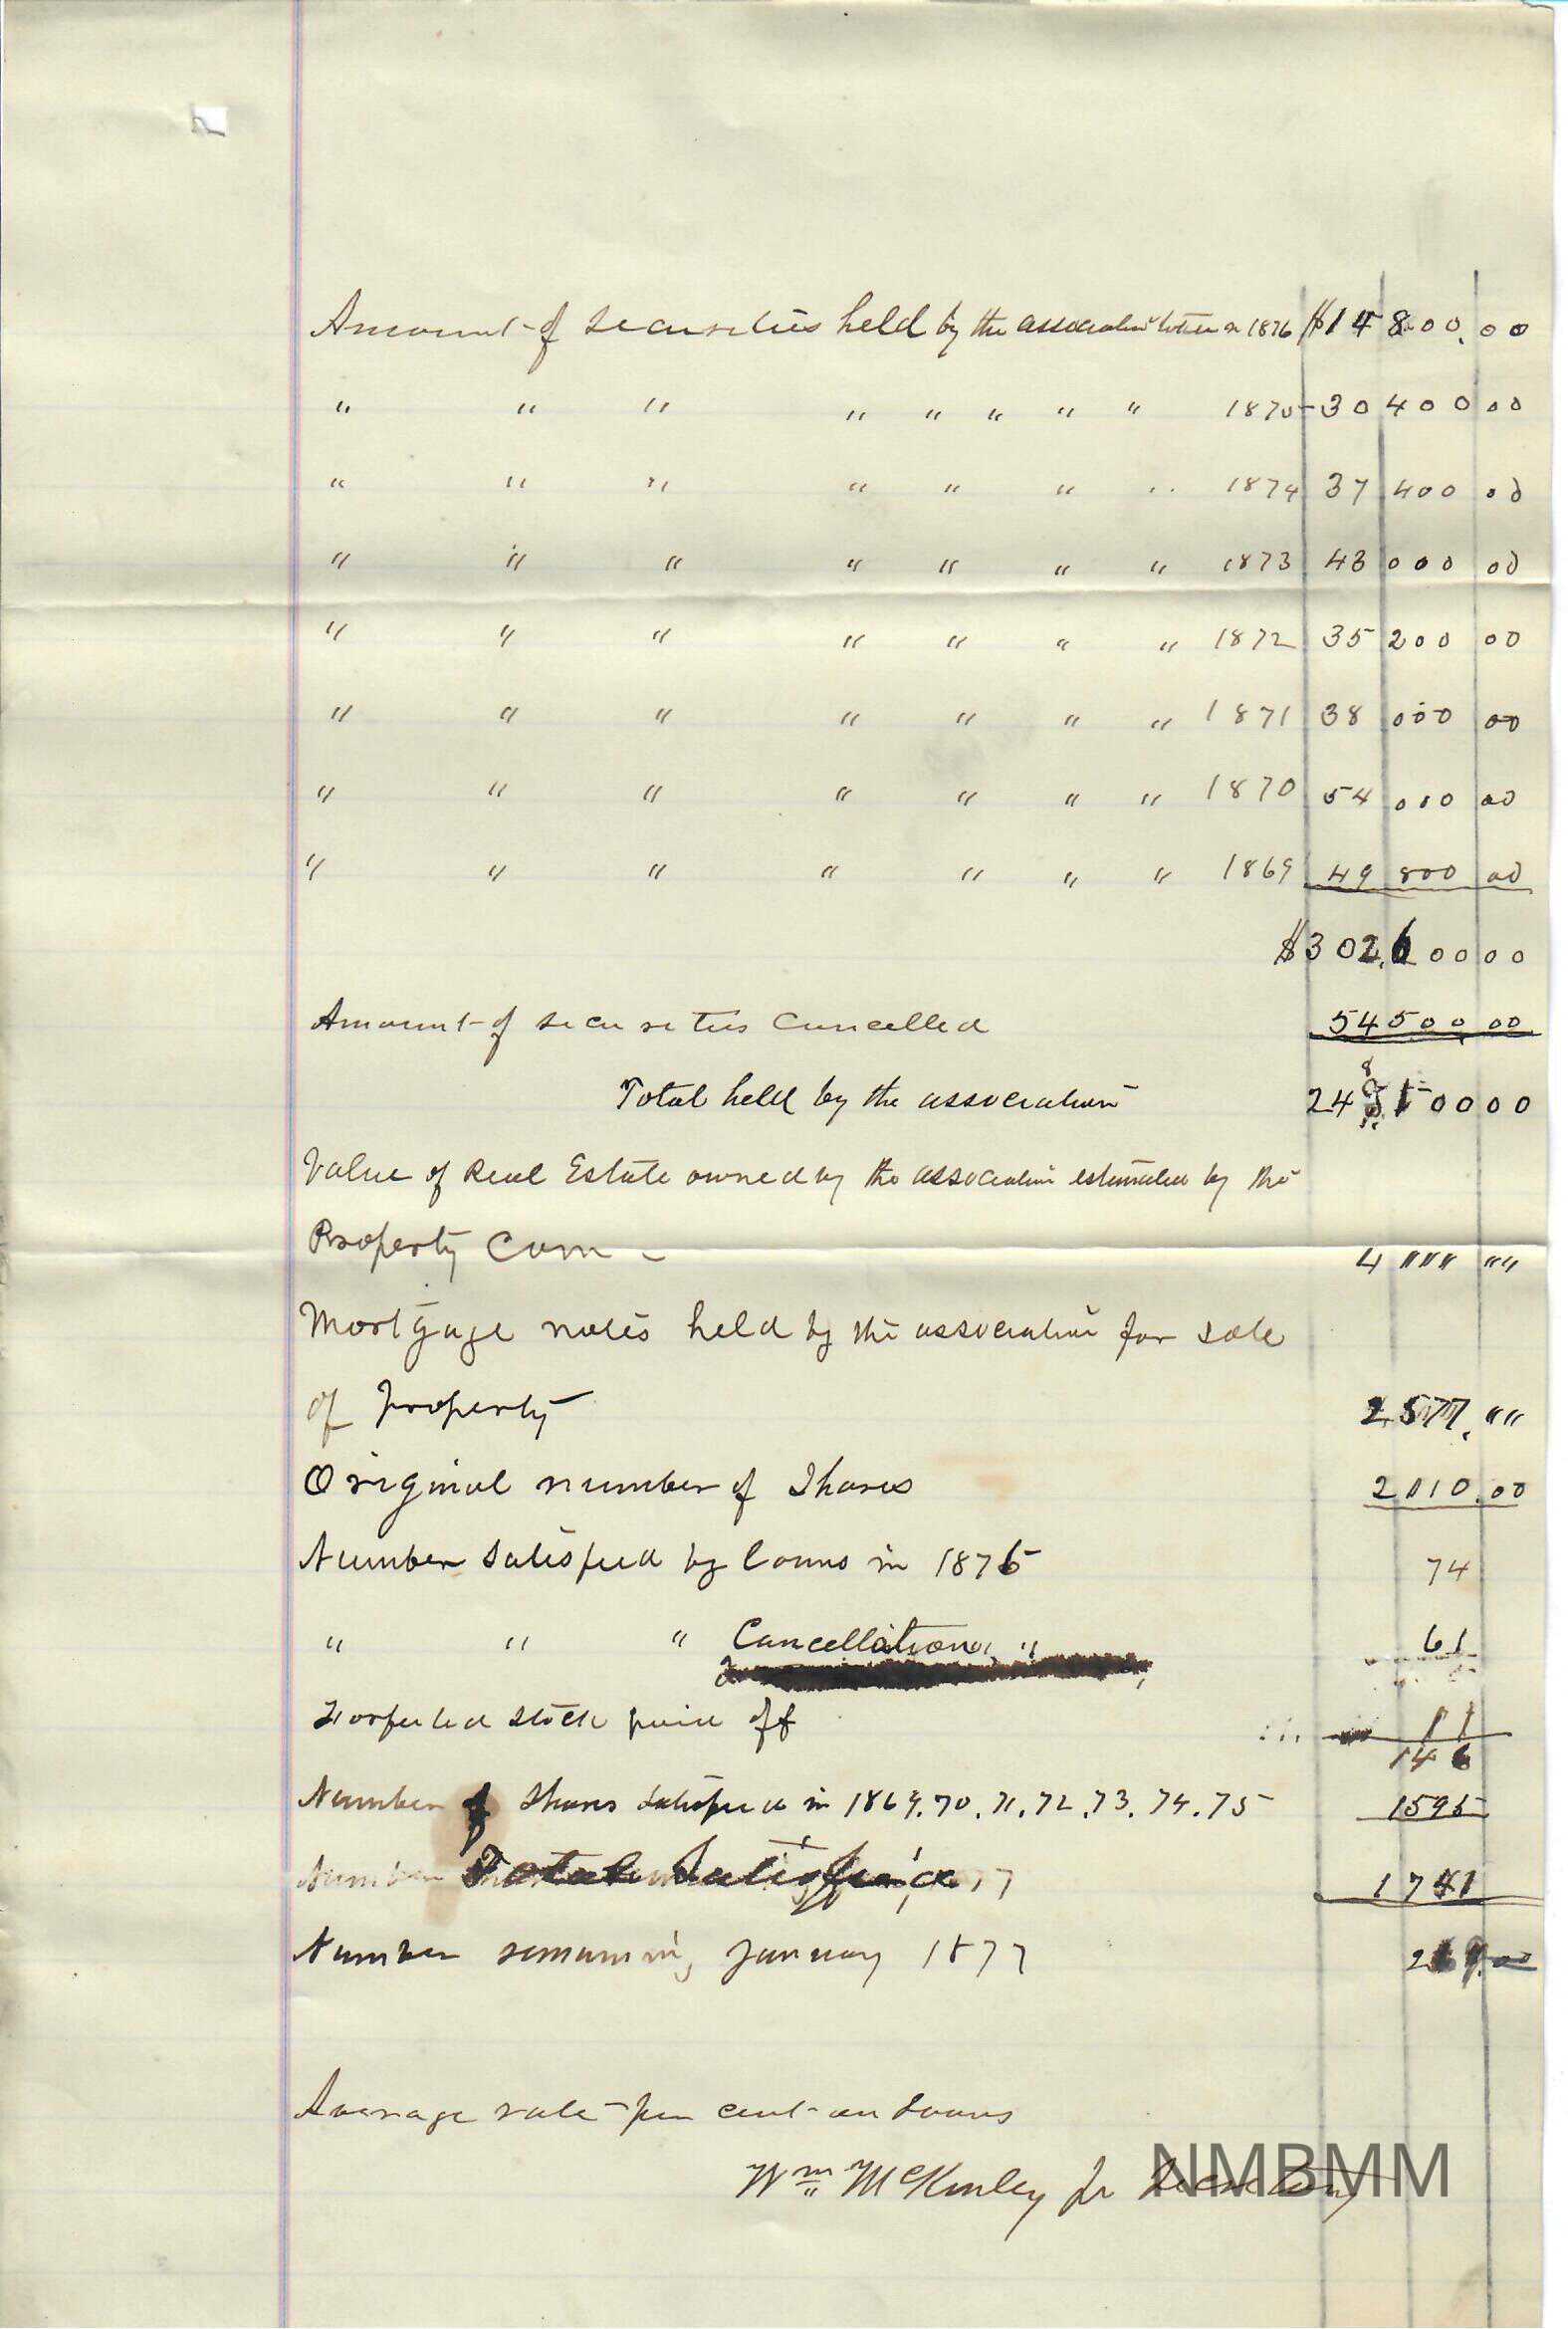 Amount of securities held by the association taken in 1876 $14800.00
" " " " " " " " 1875 30 400 00
" " " " " " " 1874 37 400 00
" " " " " " " 1873 43 000 00
" " " " " " " 1872 35 200 00
" " " " " " " 1871 38 000 00
" " " " " " " 1870 54 000 00
" " " " " " " 1869 49 800 00
$302,60000
Amount of securities Cancelled 54500.00
Total held by the association 24810000
Value of Real Estate owned by the association estimated by the
Property Com - 4 """ ""
Mortgage notes held by the association for sale
of Property 2577. ""
Original number of Shares 2010.00
Number Satisfied by loans in 1876 74
" " " Cancellation " 61
Forfeited Stock paid off 11
146
Number of Shares Satisfied in 1869.70.71.72.73.74.75 1595
Number Total Satisfied 77 1741
Number remaining January 1877 269.00
Average rate per cent on Loans
Wm McKinley Jr Secretary
NMBMM